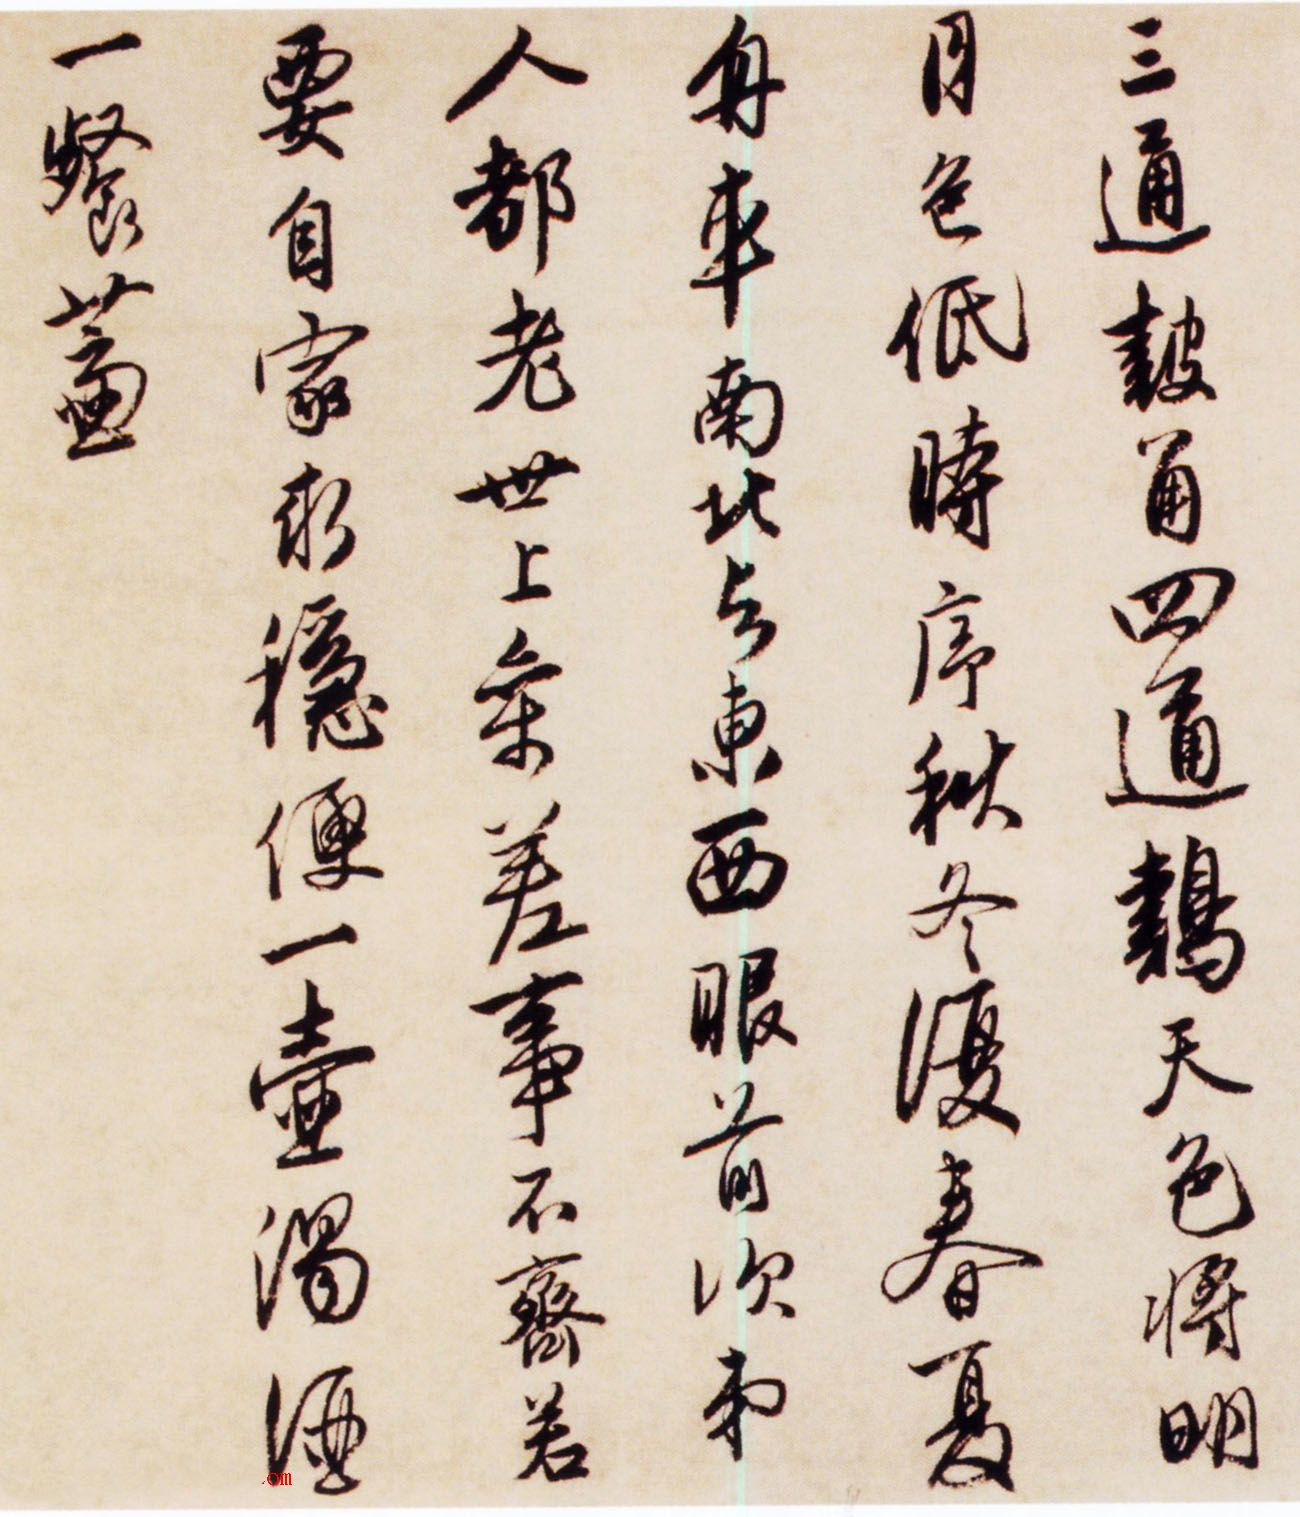 三通皷角四通鷄天色將明
月色低時序秋冬復春夏
舟車南北与東西眼前次第
人都老世上參差事不齊若
要自家求穩便一壺濁酒
一餐虀
.om